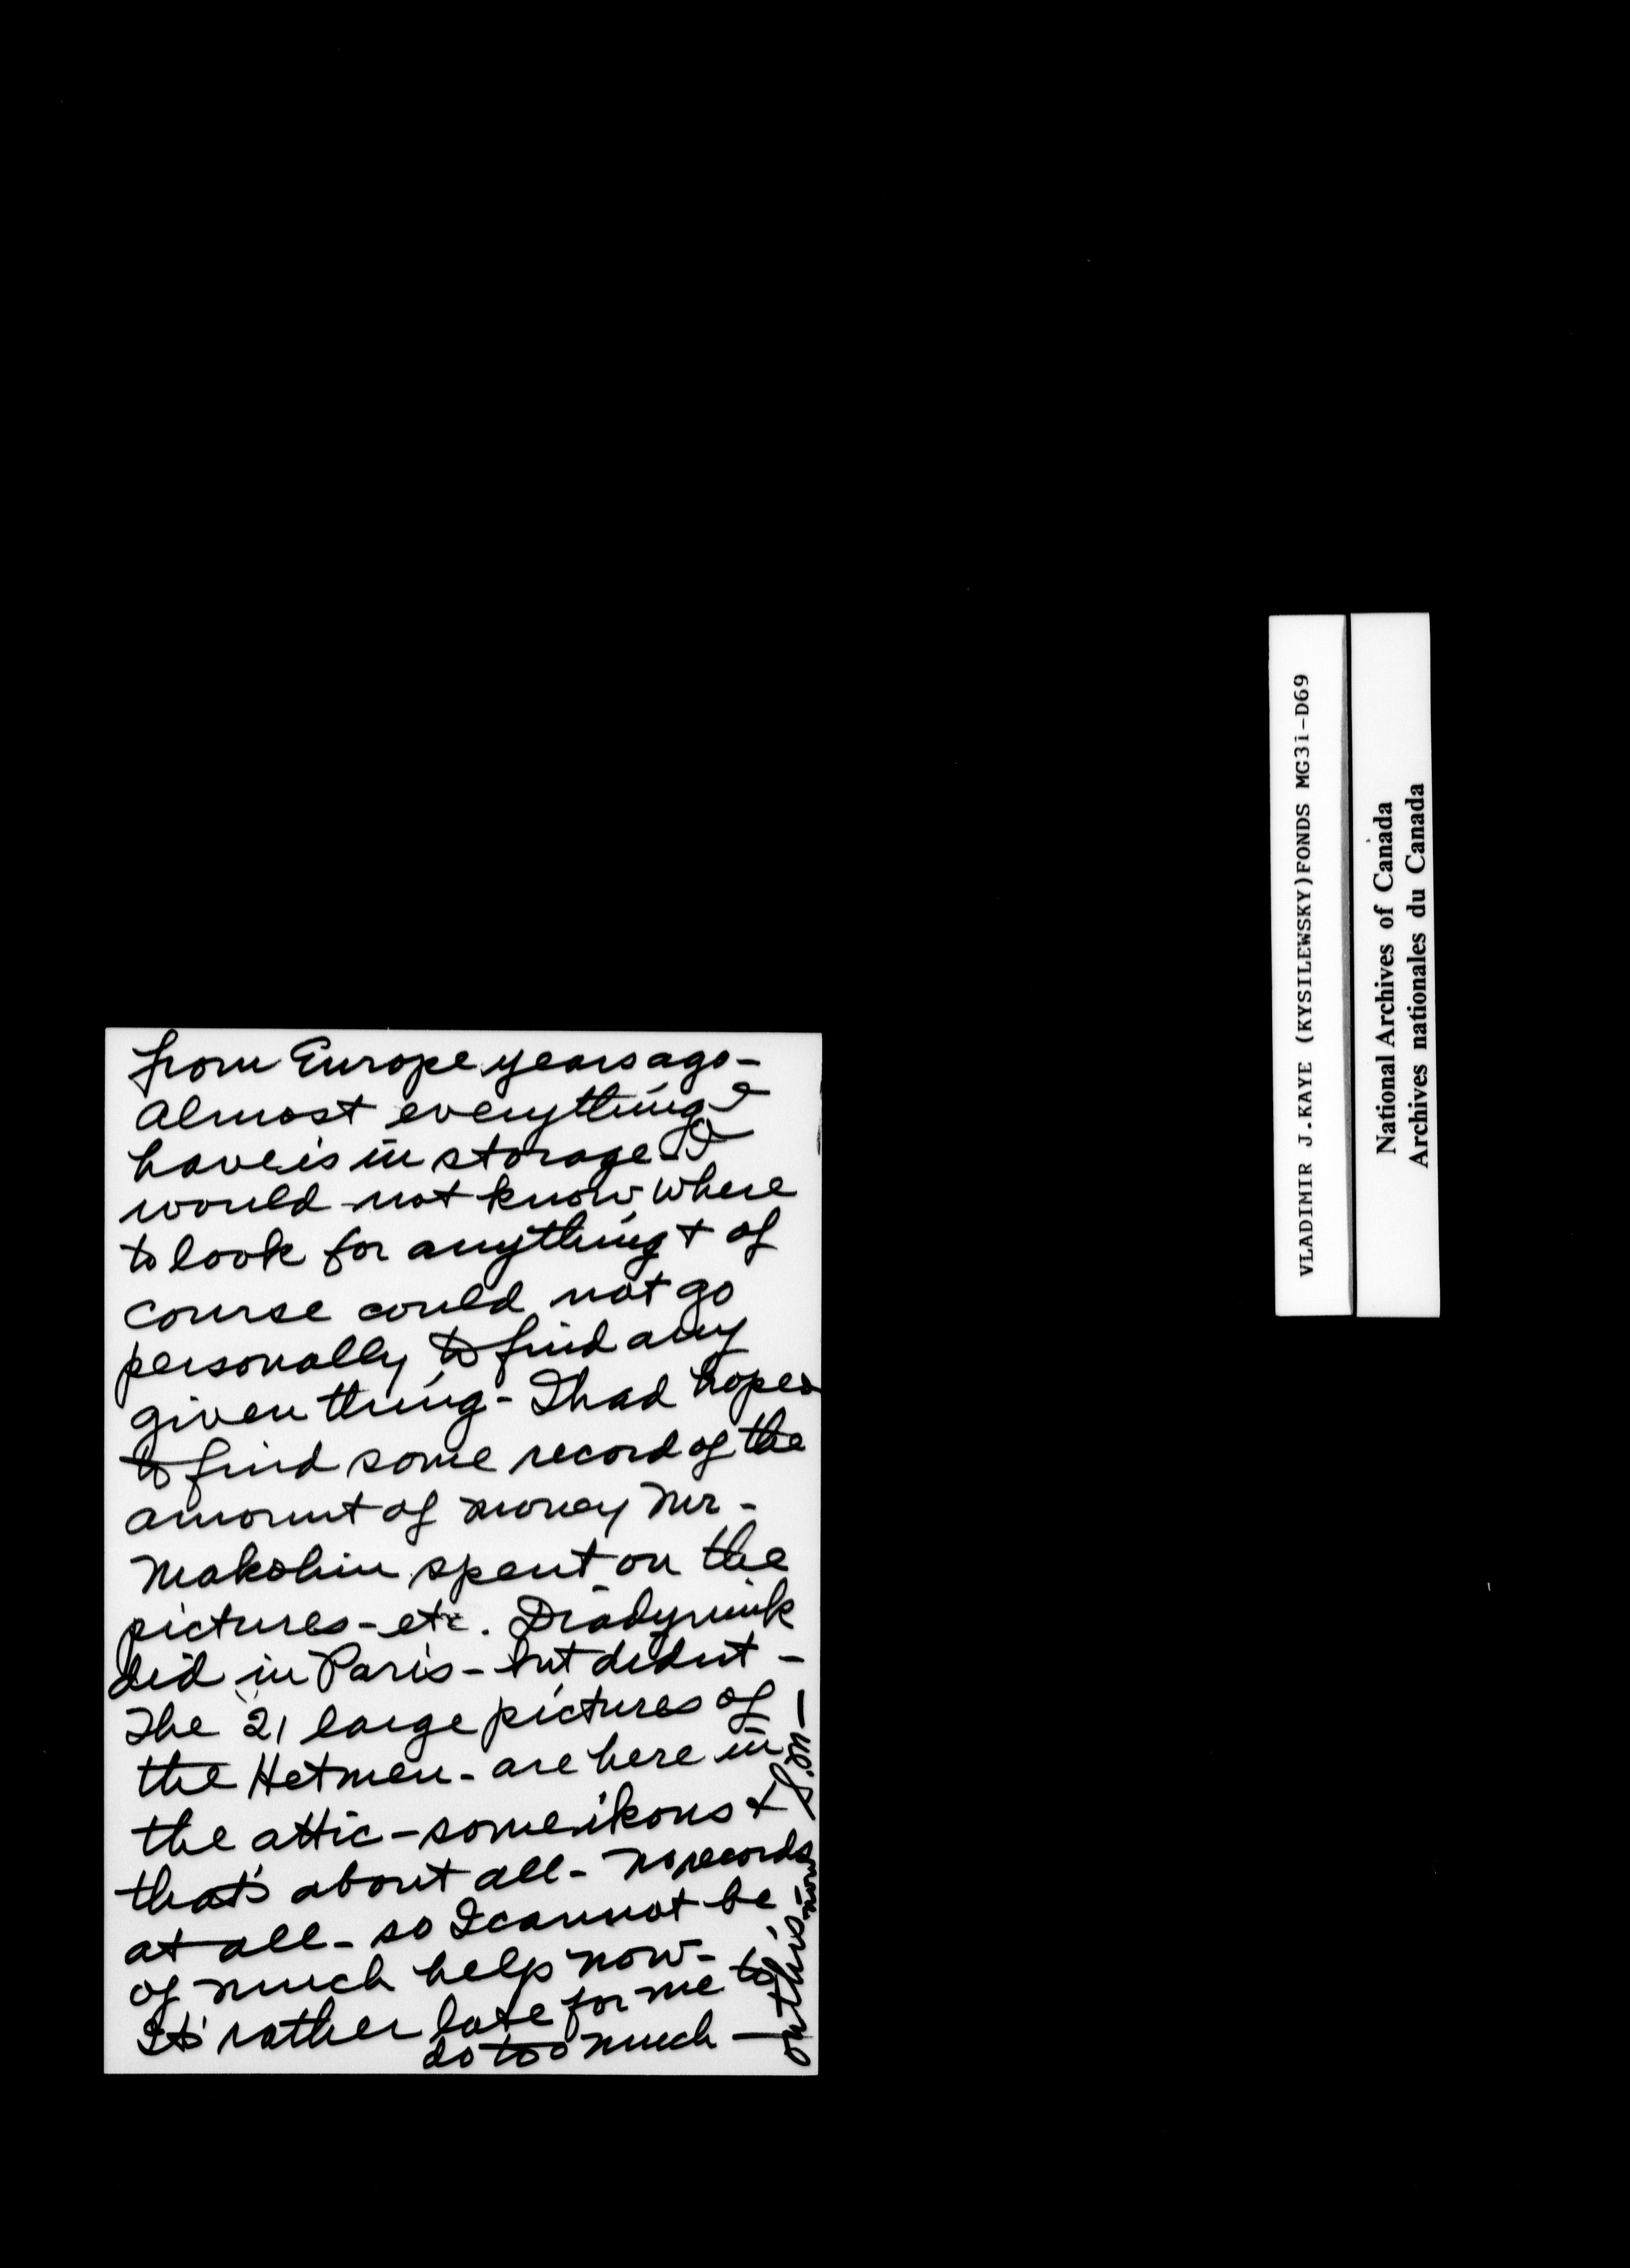 from Europe years ago -
Almost everything I
have is in storage - I
would not know where
to look for anything & of
course could not go
personally to find any
given thing - I had hoped
to find some record of the
amount of money Mr -
Makohin spent on the
pictures - etc. Diadyniuk
did in Paris - but didn't -
The 21 large pictures of
the Hetmen - are here in
the attic - some ikons &
that's about all - no records
at all - so I cannot be
of much help now -
It's rather late for me to
do too much -
on this now
S.M -
VLADIMIR J.KAYE (KYSILEWSKY)FONDS MG31-D69
National Archives of Canada
Archives nationales du Canada